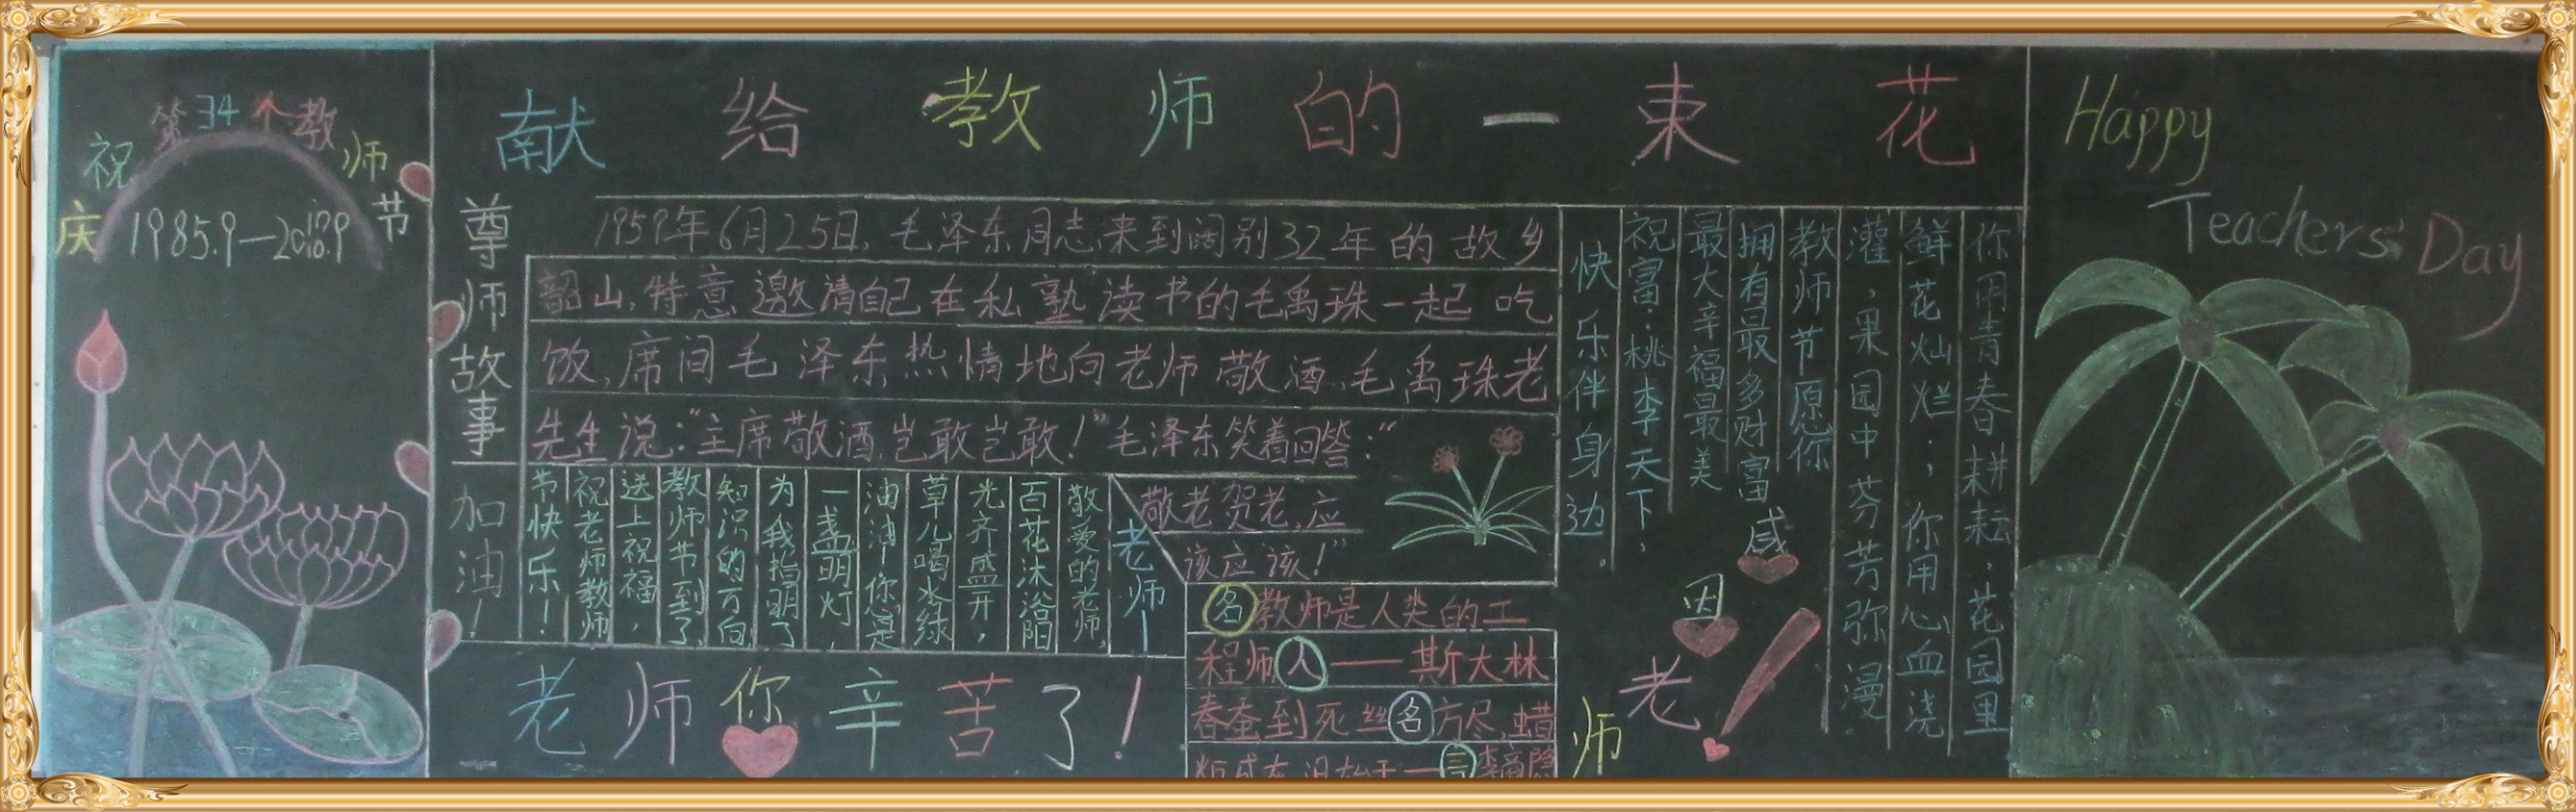 庆祝第34个教师节
1985.9—2018.9
献给教师的一束花
尊师故事
1959年6月25日，毛泽东同志来到阔别32年的故乡
韶山，特意邀请自己在私塾读书的毛禹珠一起吃
饭，席间毛泽东热情地向老师敬酒，毛禹珠老
先生说：“主席敬酒，岂敢岂敢！”毛泽东笑着回答：“
敬老贺老，应
该应该！”
加油！
老师！
敬爱的老师，
百花沐浴阳
光齐盛开，
草儿喝水绿
油油，你是
一盏明灯，
为我指明了
知识的方向，
教师节到了，
送上祝福，
祝老师教师
节快乐！
名教师是人类的工
程师人——斯大林
春蚕到死丝名方尽，蜡
言李商隐
老师你辛苦了！
你用青春耕耘，花园里
鲜花灿烂；你用心血浇
灌，果园中芬芳弥漫。
教师节愿你
拥有最多财富
最大幸福最美
祝富：桃李天下，
快乐伴身边。
感因老师
Happy
Teachers Day